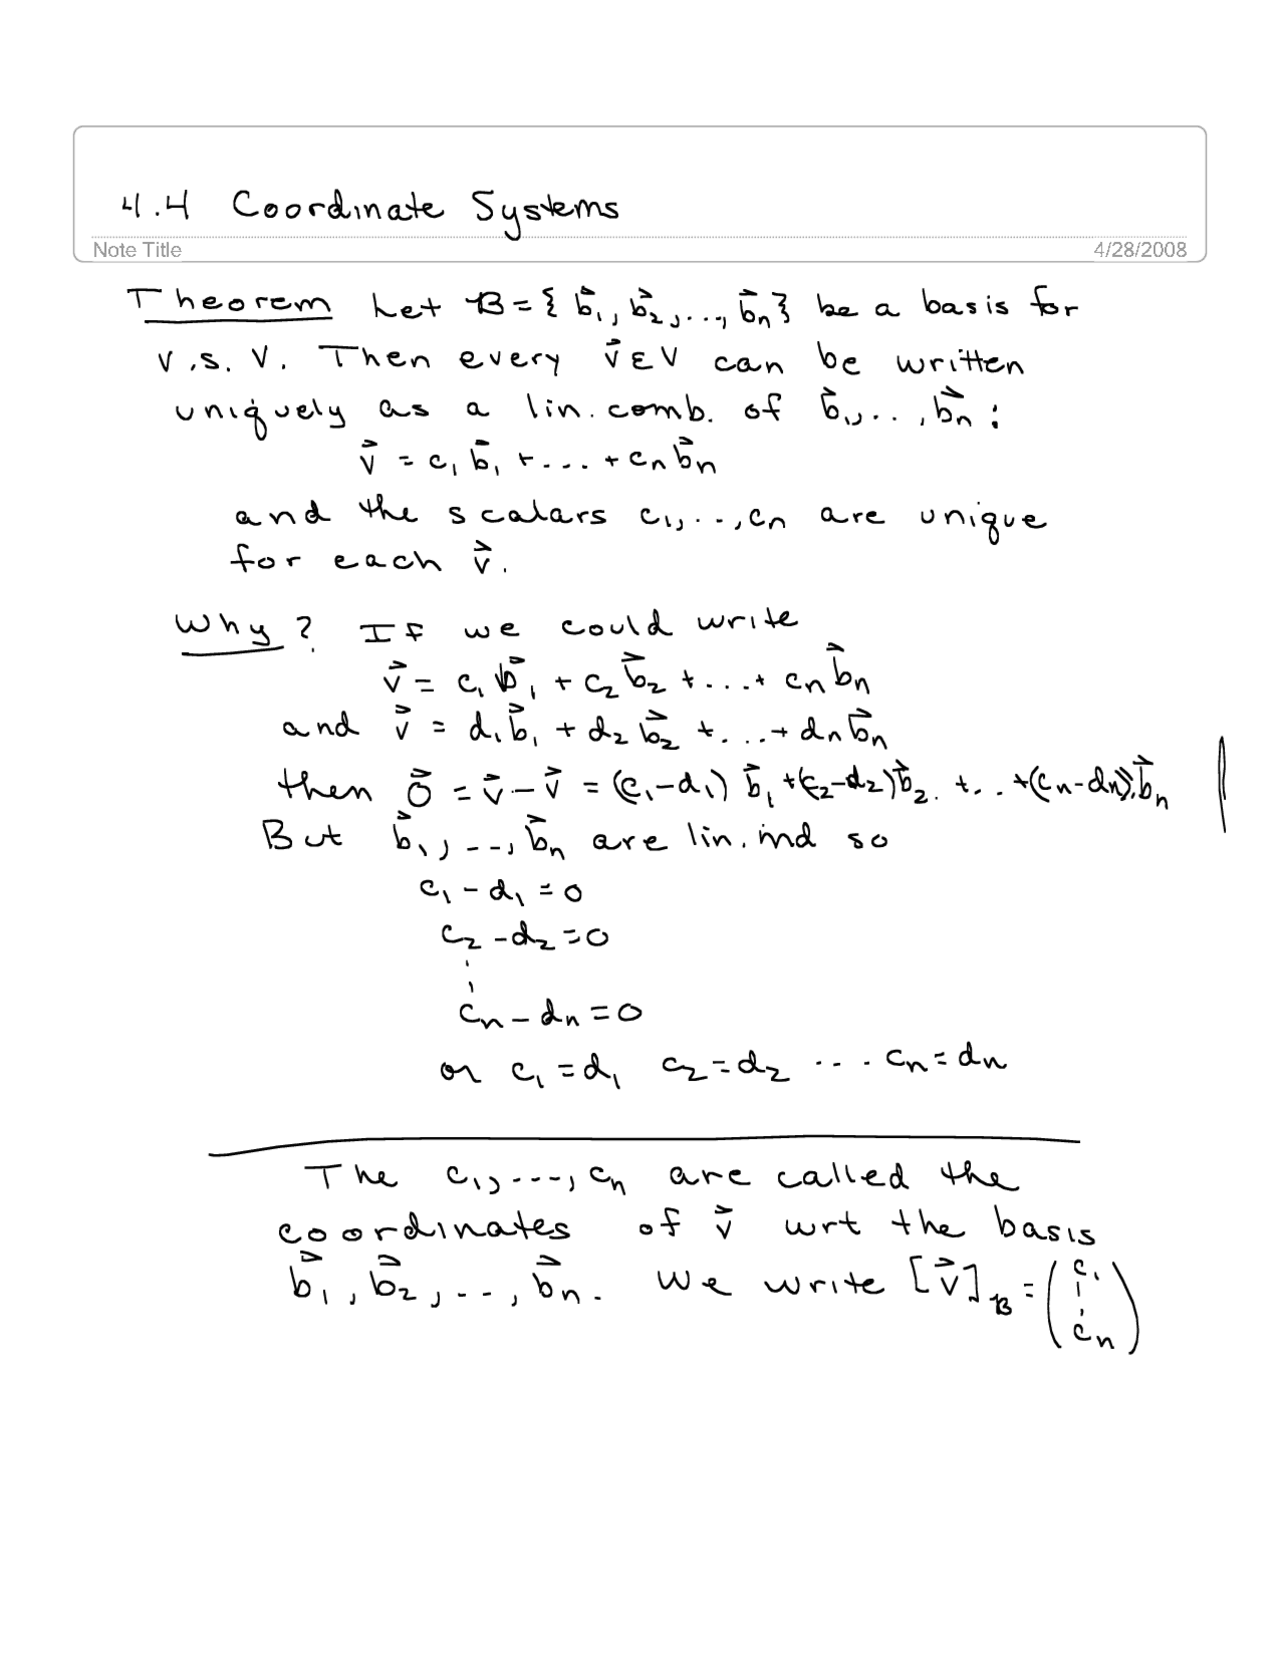 4.4 Coordinate Systems
Note Title 4/28/2008
Theorem Let B = { b⃗₁, b⃗₂, ..., b⃗n } be a basis for
v.s. V. Then every v⃗ ε V can be written
uniquely as a lin. comb. of b⃗₁, ..., b⃗n :
v⃗ = c₁ b⃗₁ + ... + cn b⃗n
and the scalars c₁, ..., cn are unique
for each v⃗.
Why? If we could write
v⃗ = c₁ b⃗₁ + c₂ b⃗₂ + ... + cn b⃗n
and v⃗ = d₁ b⃗₁ + d₂ b⃗₂ + ... + dn b⃗n
then 0⃗ = v⃗ - v⃗ = (c₁-d₁) b⃗₁ + (c₂-d₂) b⃗₂ + ... + (cn-dn) b⃗n
But b⃗₁, ..., b⃗n are lin. ind so
c₁ - d₁ = 0
c₂ - d₂ = 0
⋮
cn - dn = 0
or c₁ = d₁ c₂ = d₂ ... cn = dn
The c₁, ..., cn are called the
coordinates of v⃗ wrt the basis
b⃗₁, b⃗₂, ..., b⃗n. We write [v⃗]B = (c₁ ⋮ cn)